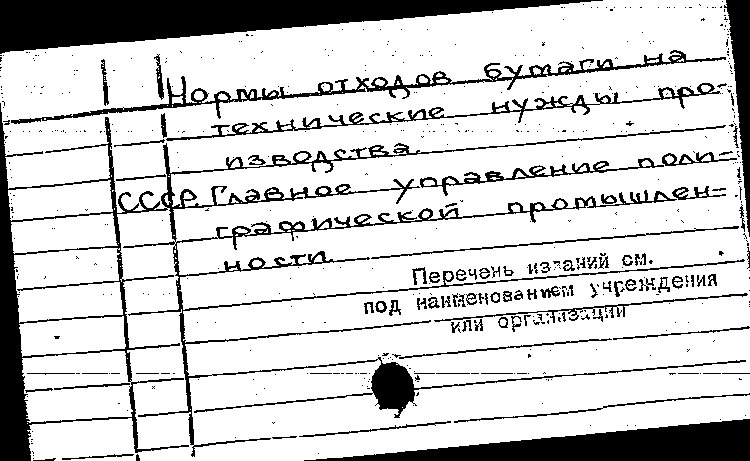 Нормы отходов бумаги на
технические нужды про-
изводства.
СССР. Главное управление поли-
графической промышлен-
ности.
Перечень изданий см.
под наименованием учреждения
или организации